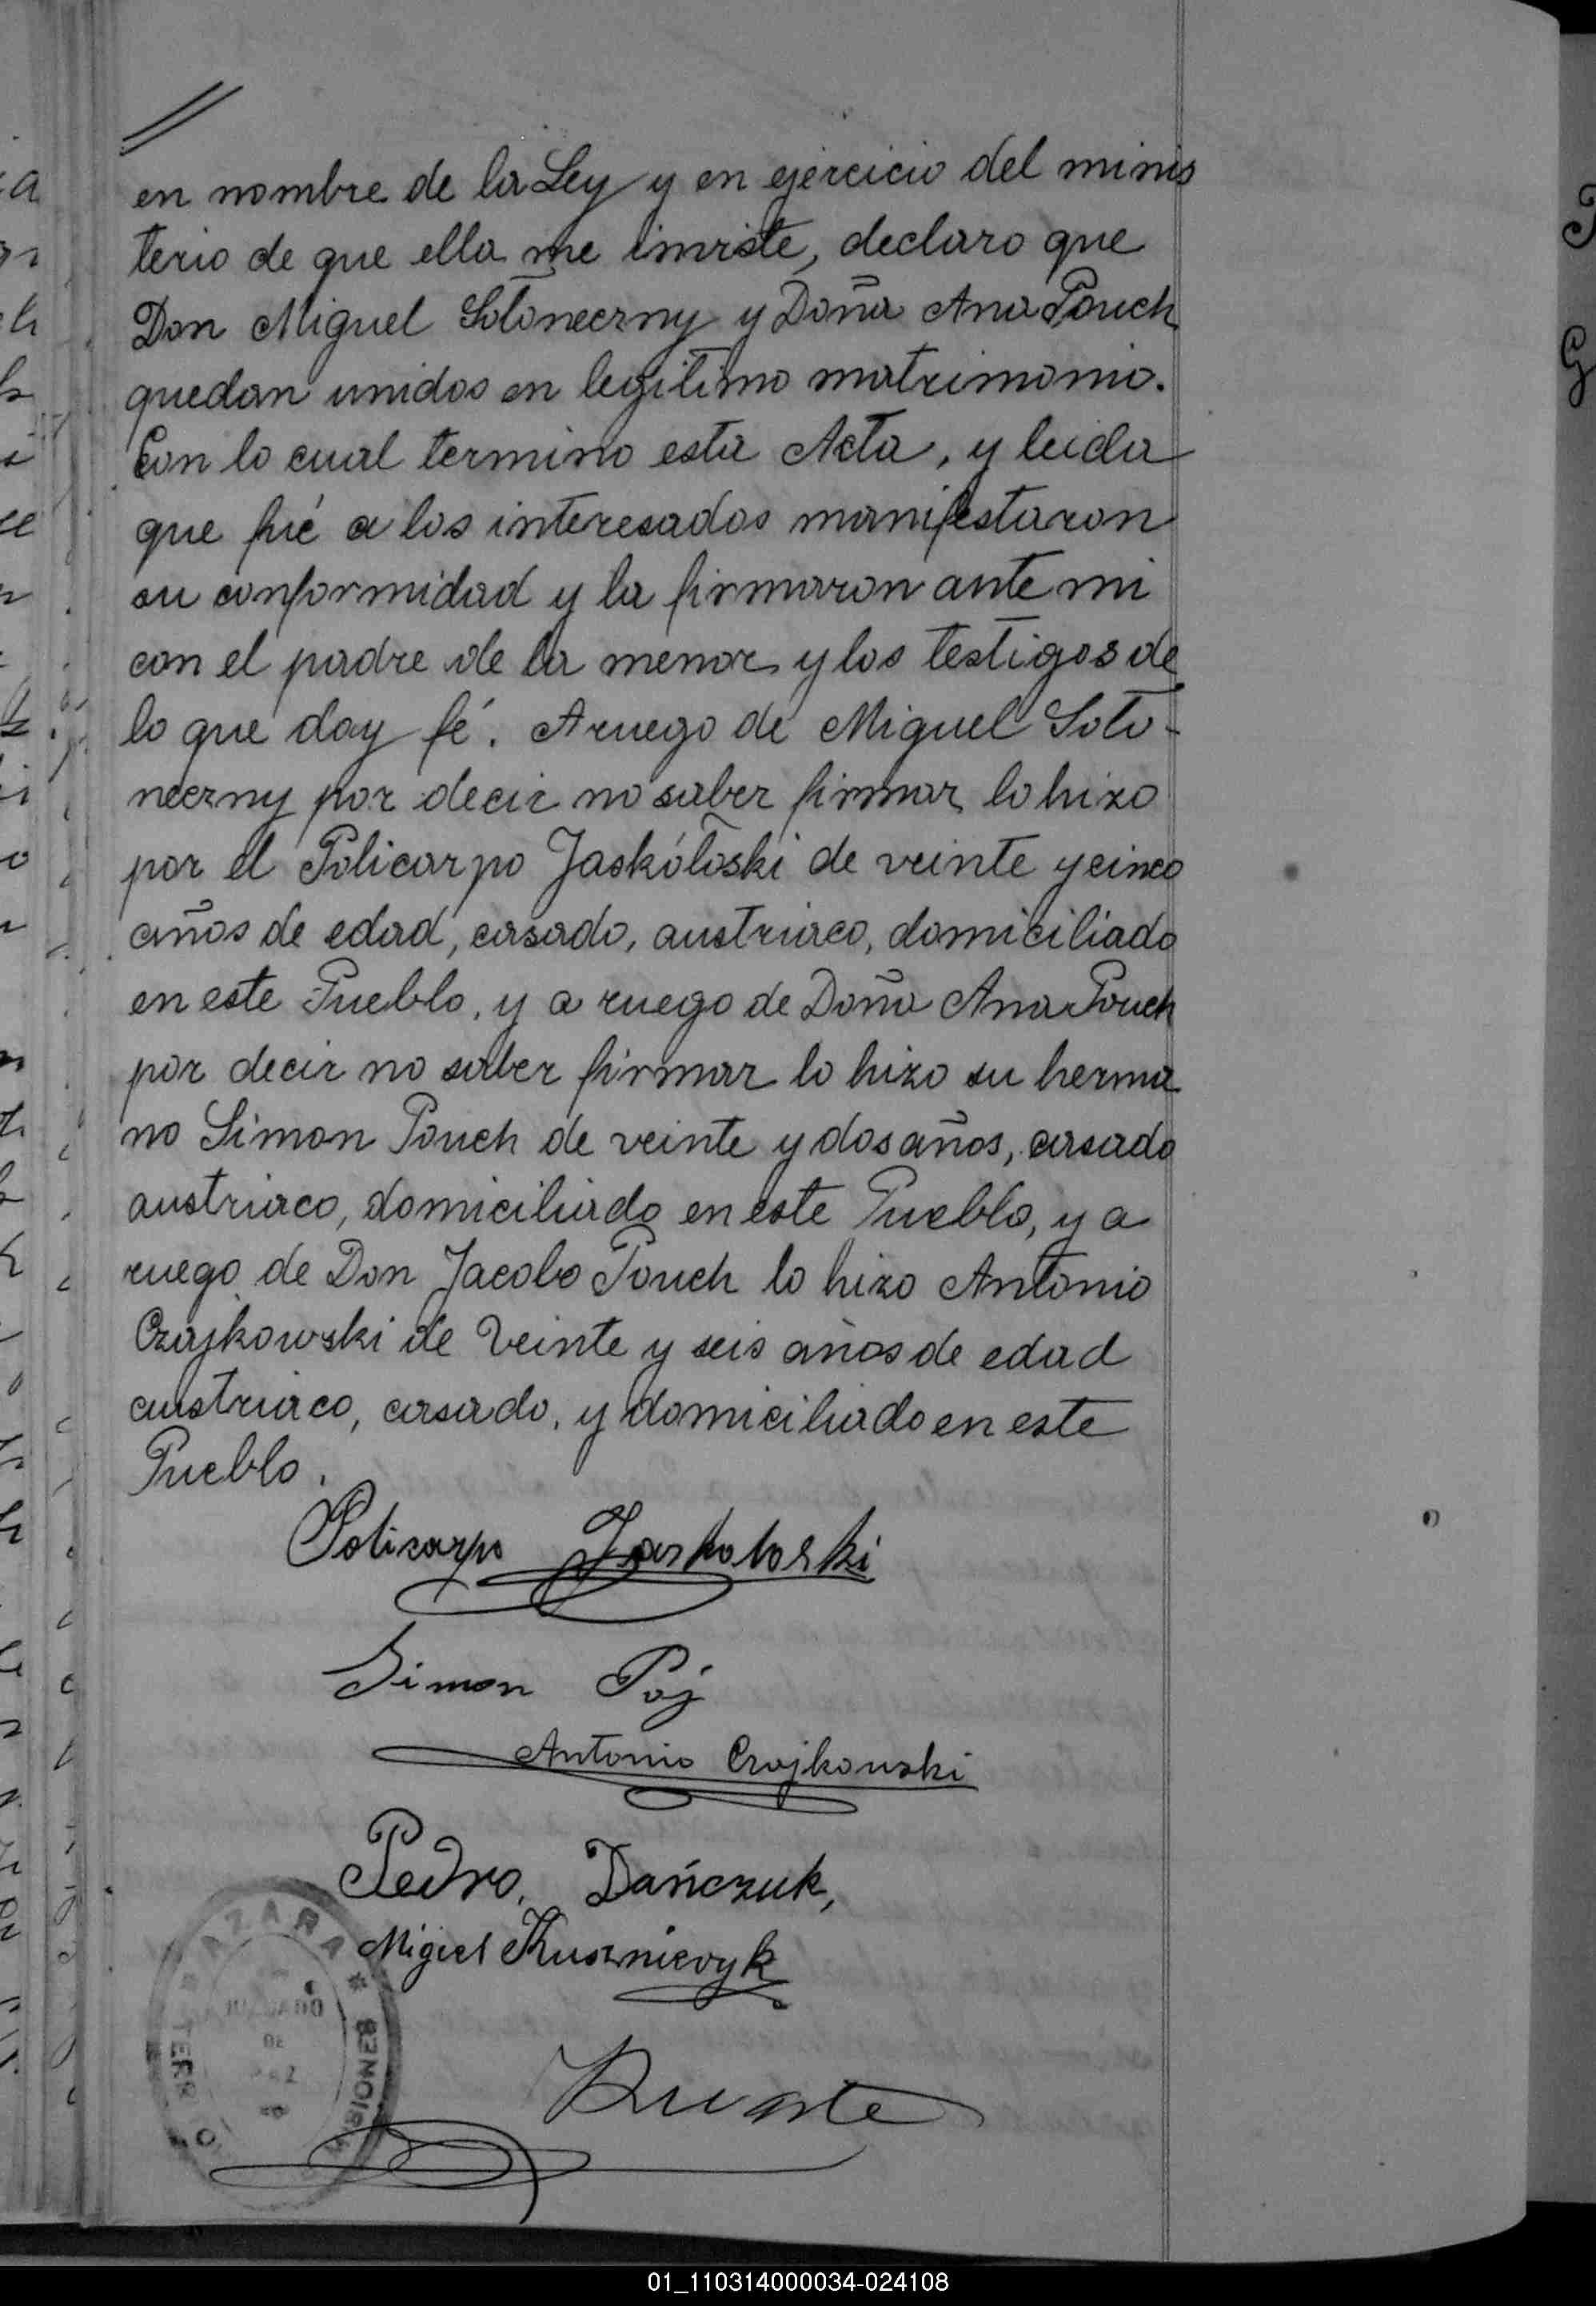 en nombre de la Ley y en ejercicio del minis
terio de que ella me inviste, declaro que
Don Miguel Sotoneczny y Doña Ana Pouch
quedan unidos en legitimo matrimonio.
Con lo cual termino esta Acta, y leida
que fué a los interesados manifestaron
su conformidad y la firmaron ante mi
con el padre de la menor y los testigos de
lo que doy fé. A ruego de Miguel Soto-
neczny por decir no saber firmar lo hizo
por el Policarpo Jaskótoski de veinte y cinco
años de edad, casado, austriaco, domiciliado
en este Pueblo, y a ruego de Doña Ana Pouch
por decir no saber firmar lo hizo su herma
no Simon Pouch de veinte y dos años, casado
austriaco, domiciliado en este Pueblo, y a
ruego de Don Jacobo Pouch lo hizo Antonio
Czajkowski de veinte y seis años de edad
austriaco, casado, y domiciliado en este
Pueblo.
Policarpo Jaskotoski
Simon Pój
Antonio Czajkowski
Pedro. Dańczuk,
Migiel Kusznieryk
AZARA
JUZGADO
DE
PAZ
MISIONES
01_110314000034-024108